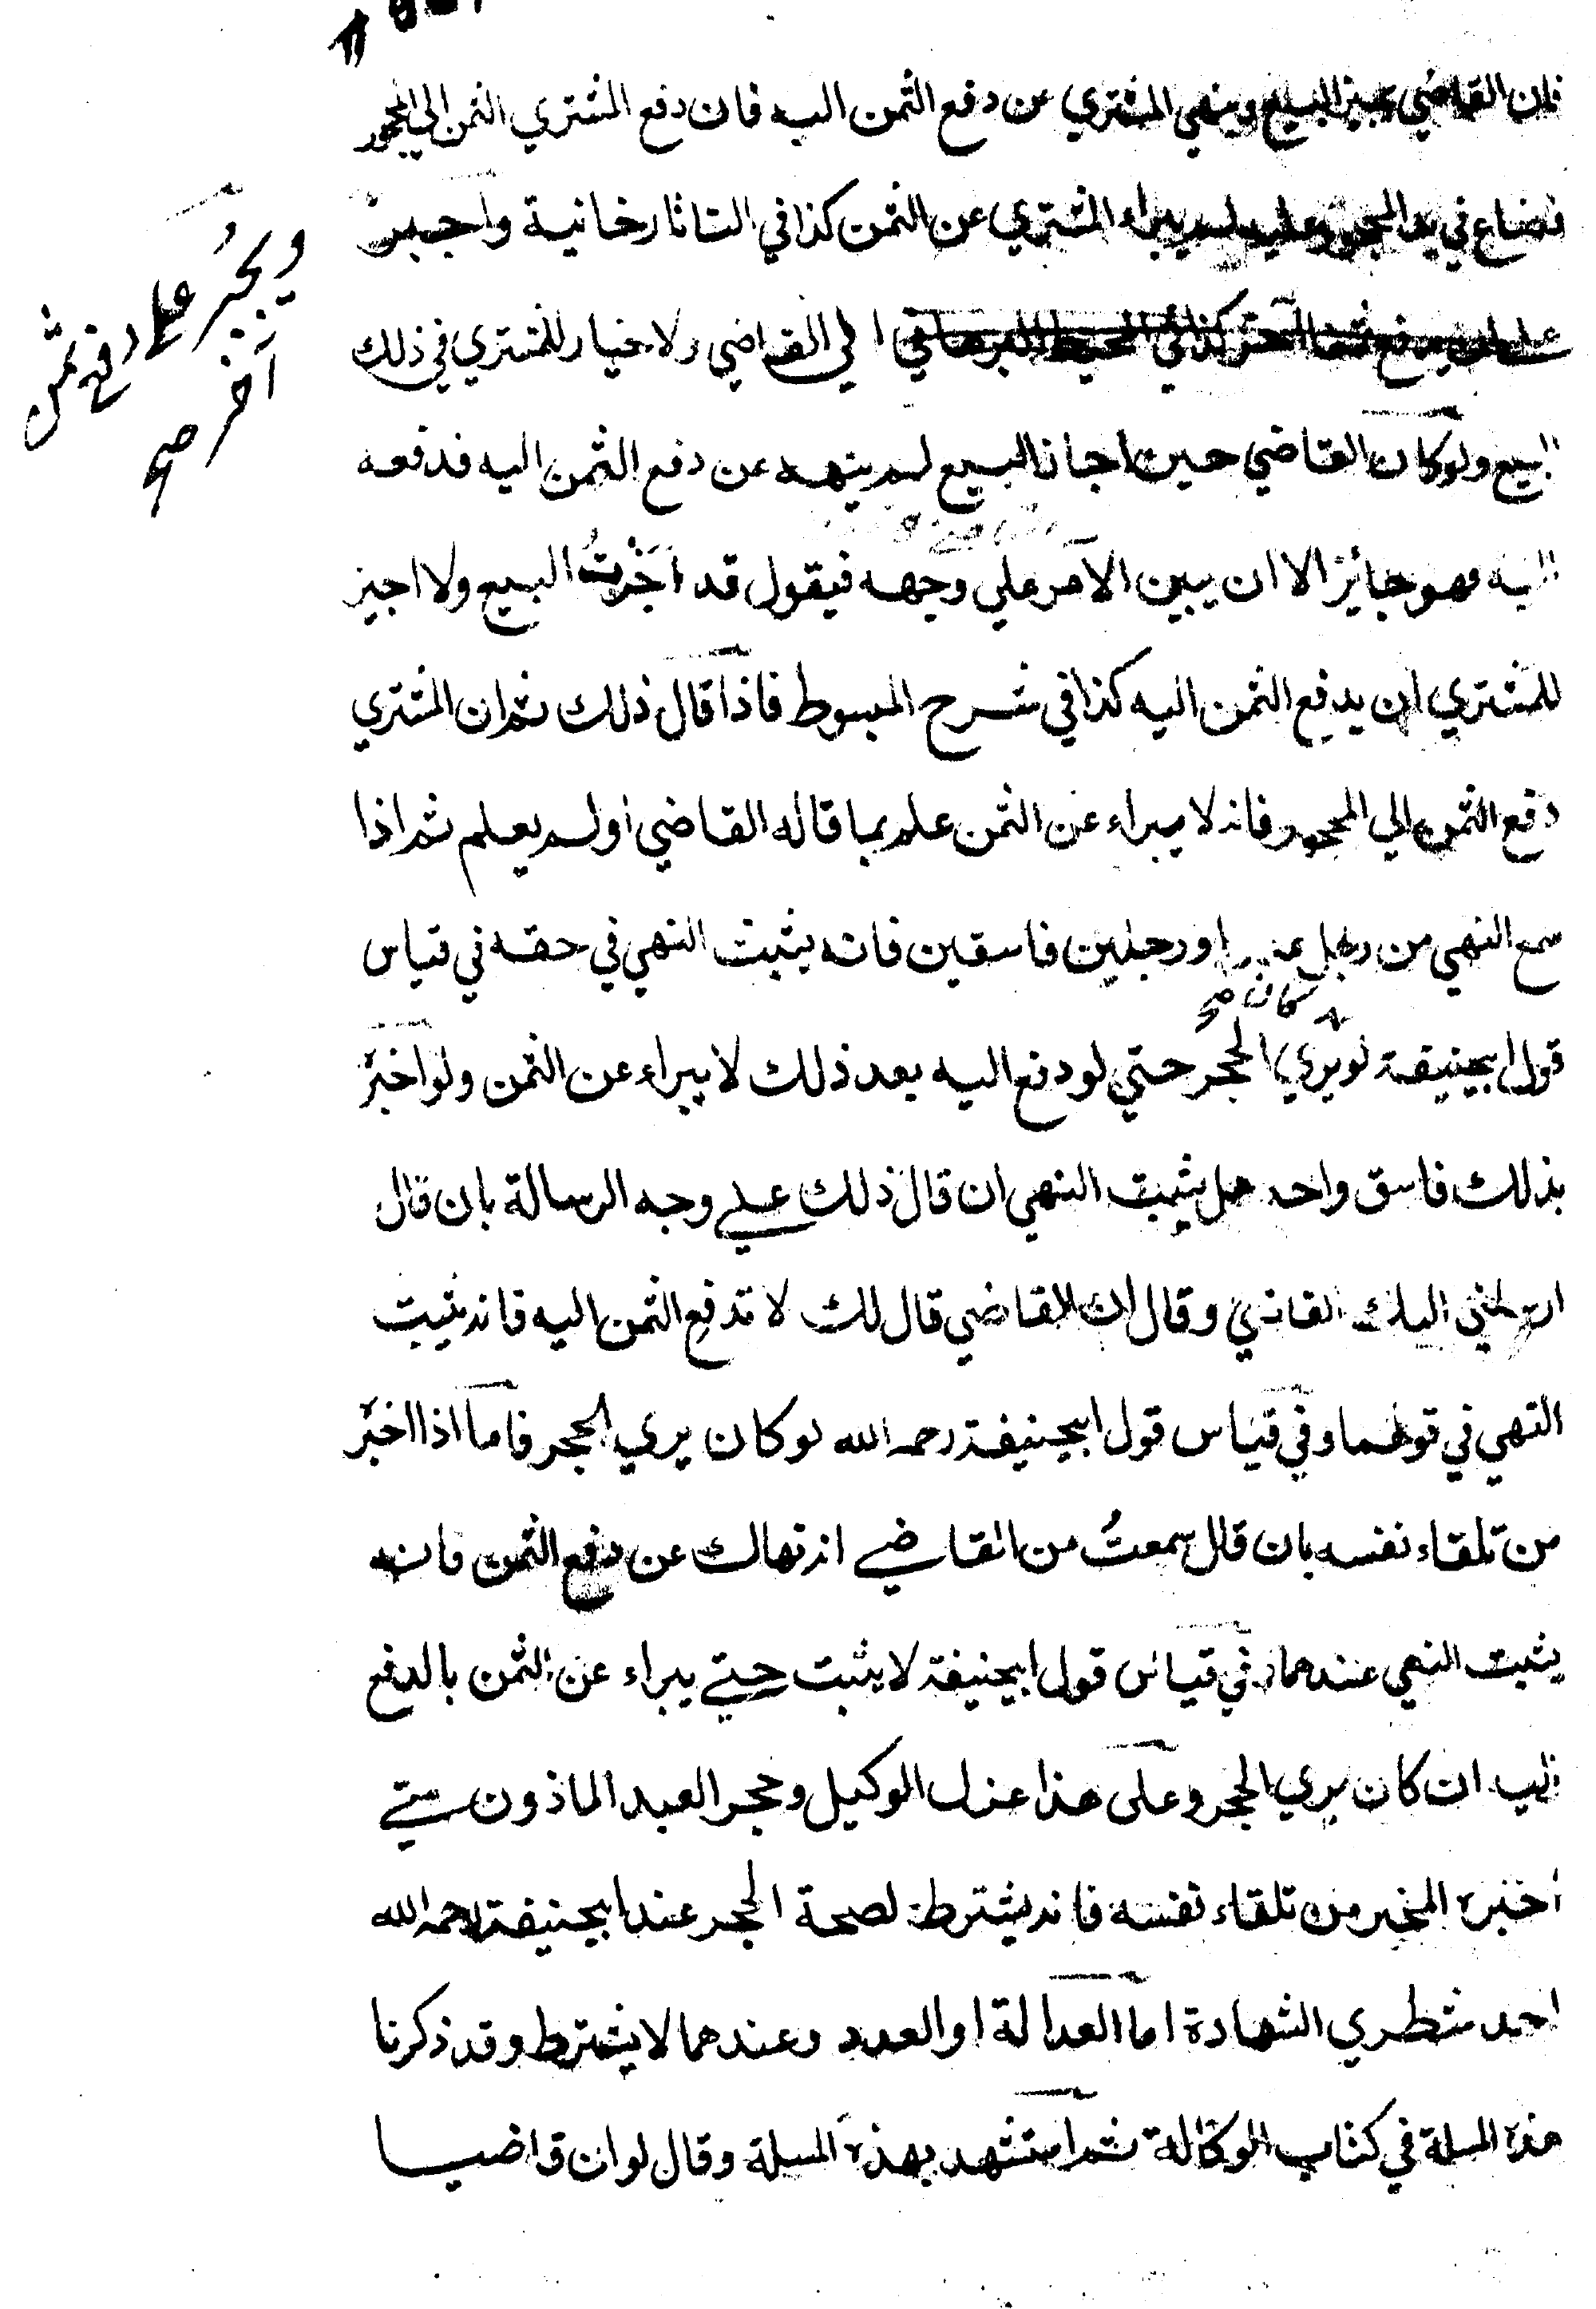 فان القاضي يجيز البيع وينهي المشتري عن دفع الثمن اليه فان دفع المشتري الثمن الي المحجور
فضاع في يد المحجور عليه لم يبراء المشتري عن الثمن كذا في التاتارخانية واجبر
علي ان يدفع ثمنا آخر كذا في المحيط الي القاضي ولا خيار للمشتري في ذلك
ويجبر علي دفع ثمن
آخر صح
البيع ولو كان القاضي حين اجاز البيع لم ينهه عن دفع الثمن اليه فدفعه
اليه فهو جائز الا ان يبين الامر علي وجهه فيقول قد اجزتُ البيع ولا اجيز
للمشتري ان يدفع الثمن اليه كذا في شرح المبسوط فاذا قال ذلك ثم ان المشتري
دفع الثمن الي المحجور فانه لا يبراء عن الثمن علم بما قاله القاضي او لم يعلم ثم اذا
سمع النهي من رجل او رجلين فاسقين فانه يثبت النهي في حقه في قياس
كان صح
قول ابيحنيفة لو يري الحجر حتي لو دفع اليه بعد ذلك لا يبراء عن الثمن ولو اخبر
بذلك فاسق واحد هل يثبت النهي ان قال ذلك علي وجه الرسالة بان قال
ارسلني اليك القاضي وقال ان القاضي قال لك لا تدفع الثمن اليه فانه يثبت
النهي في قولهما وفي قياس قول ابيحنيفة رحمه الله لو كان يري الحجر فاما اذا اخبر
من تلقاء نفسه بان قال سمعتُ من القاضي انه نهاك عن دفع الثمن فانه
يثبت النهي عندهما وفي قياس قول ابيحنيفة لا يثبت حتي يبراء عن الثمن بالدفع
اليه ان كان يري الحجر وعلى هذا عزل الوكيل وحجر العبد الماذون متي
اخبره المخبر من تلقاء نفسه فانه يشترط لصحة الحجر عند ابيحنيفة رحمه الله
احد شطري الشهادة اما العدالة او العدد وعندهما لا يشترط وقد ذكرنا
هذه المسلة في كتاب الوكالة ثم استشهد بهذه المسلة وقال لو ان قاضيا